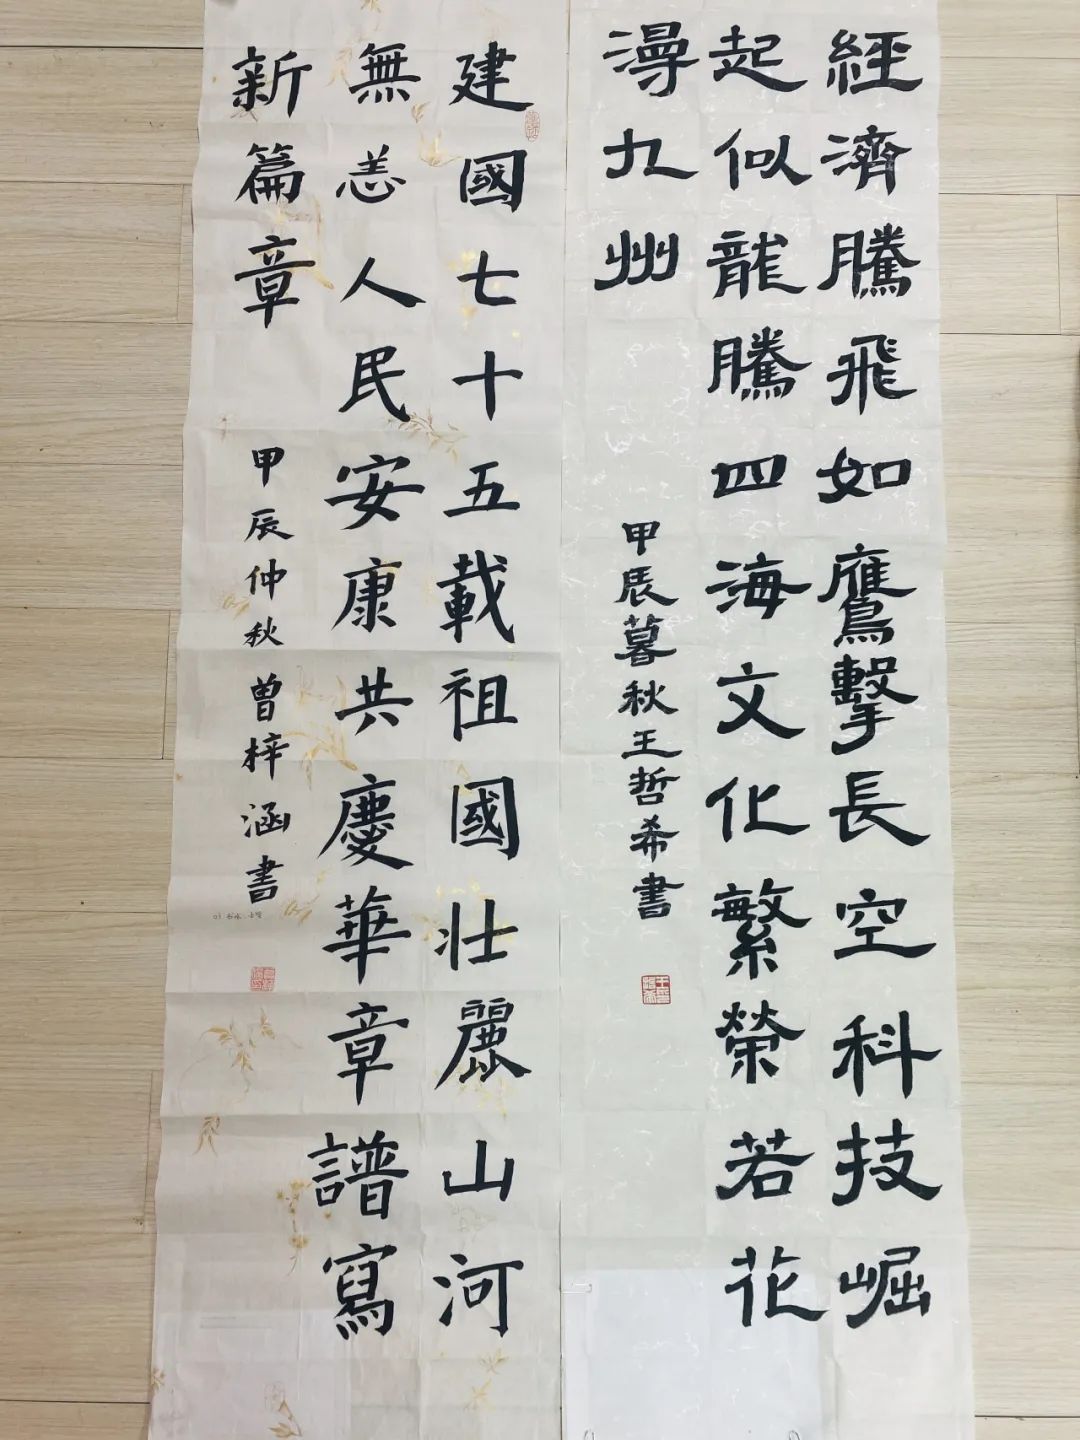 經濟騰飛如鷹擊長空科技崛
起似龍騰四海文化繁榮若花
漫九州
甲辰暮秋王哲希書
建國七十五載祖國壯麗山河
無恙人民安康共慶華章譜寫
新篇章
甲辰仲秋曾梓涵書